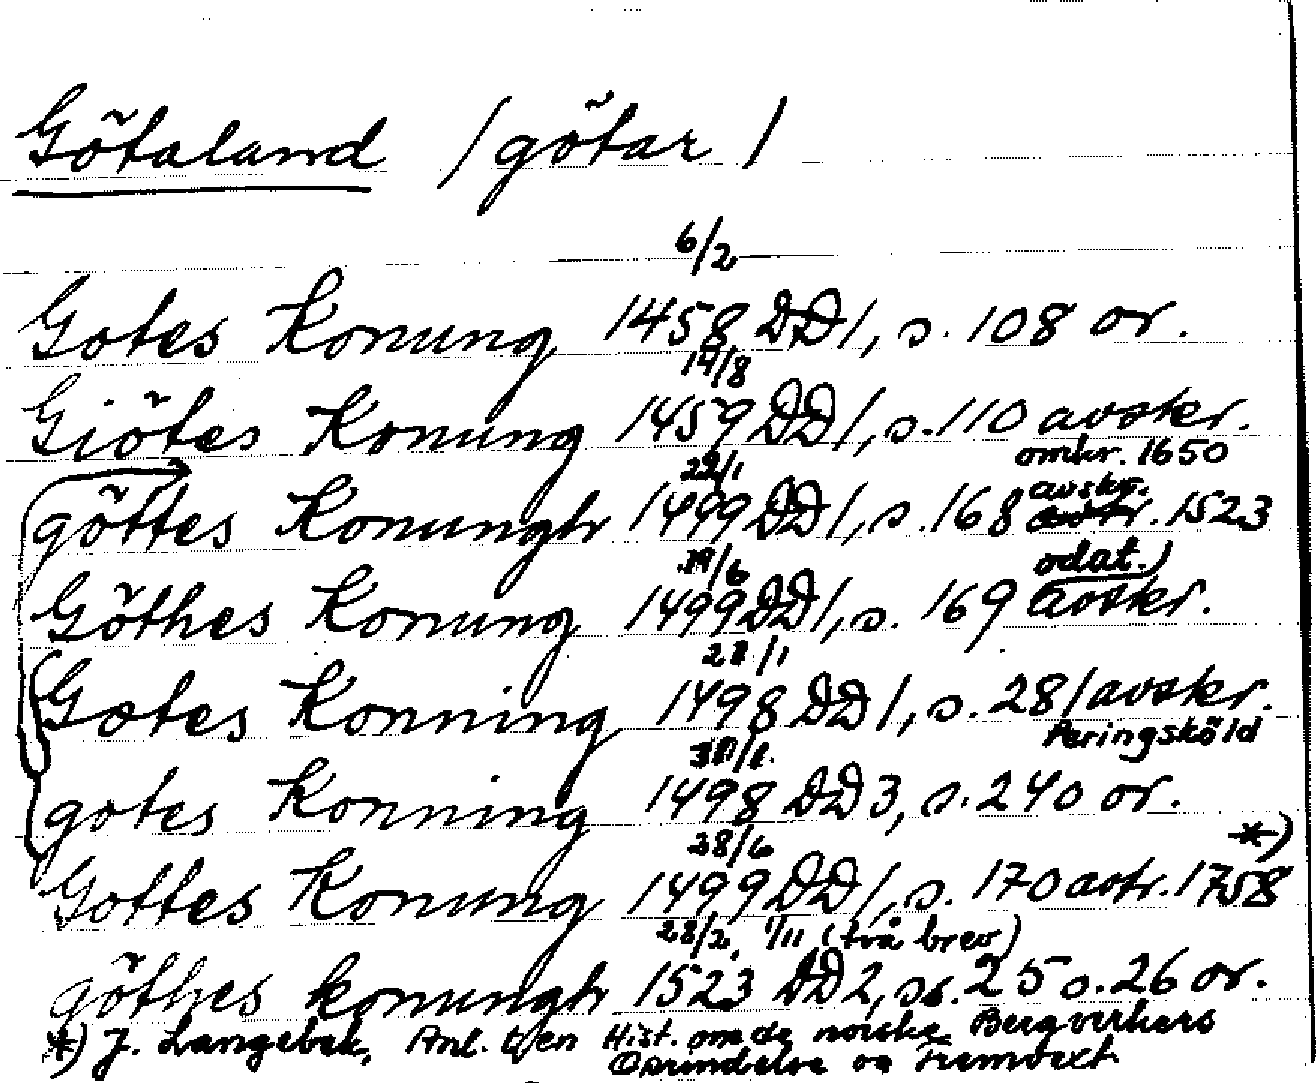 Götaland /götar/
6/2
Gotes Konung 1458 DD1, s. 108 or.
14/8
Giötes Konung 1459 DD1, s. 110 avskr.
omkr. 1650
22/1
göttes Konungh 1499 DD1, s. 168 avskr. 1523
odat.)
19/6
Göthes Konung 1499 DD1, s. 169 avskr.
28/1
Gotes Konning 1498 DD1, s. 28/avskr.
Peringsköld
gotes Konning 1498 DD3, s. 240 or.
28/6 *)
Gottes Konung 1499 DD1, s. 170 avtr. 1758
28/2, 1/11 (två brev)
göthes konungh 1523 DD2, ss. 25 o. 26 or.
*) J. Langebek, Anl. t. en Hist. om de norske Bergverkers
Oprindelse og Fremvext